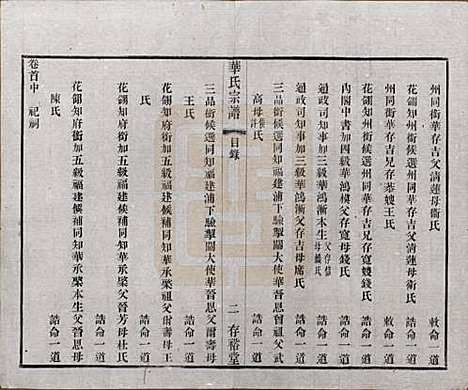 州同銜華存吉父清蓮母衞氏 敕命一道
花翎知州銜候選州同華存吉父清蓮母衞氏 誥命一道
州同銜華存吉兄存葊嫂王氏 敕命一道
花翎知州銜候選州同華存吉兄存寬嫂錢氏 誥命一道
內閣中書加四級華鴻模父存寬母錢氏 誥命一道
通政司知事加三級華鴻漸本生父存信母錢氏 誥命一道
通政司知事加三級華鴻漸父存吉母席氏 誥命一道
三品銜候選同知福建浦下驗掣關大使華晉恩曾祖父武
高母崔許氏 誥命一道
華氏宗譜 目錄 二 存裕堂
三品銜候選同知福建浦下驗掣關大使華晉恩父爾壽母
王氏 誥命一道
花翎知府銜加五級福建候補同知華承槼祖父爾壽母王
氏 誥命一道
花翎知府銜加五級福建候補同知華承槼父晉芳母杜氏 誥命一道
花翎知府銜加五級福建候補同知華承槼本生父晉恩母
陳氏 誥命一道
卷首中 祀祠